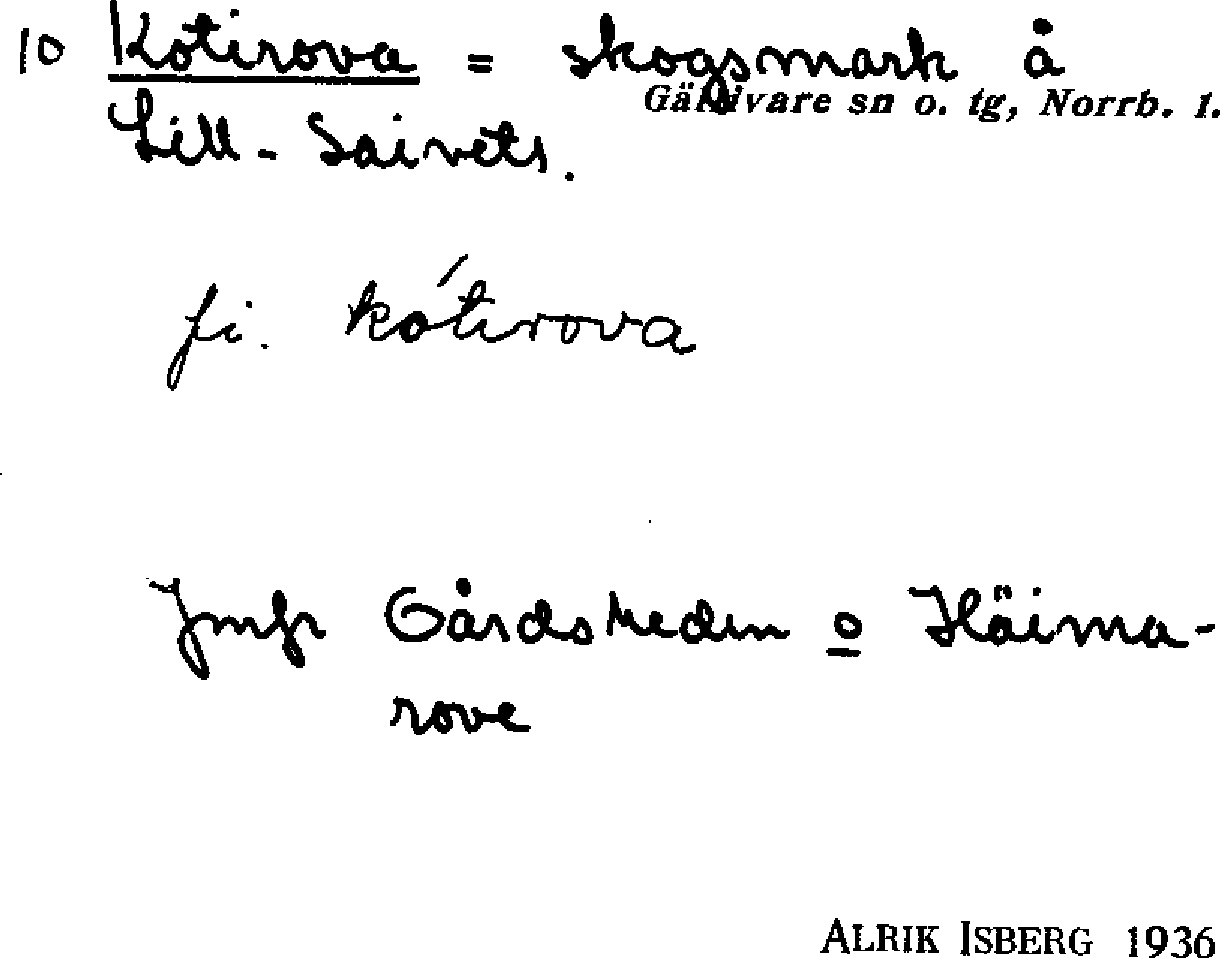 10 Kotirova = skogsmark å
Gällivare sn o. tg, Norrb. l.
Lill-Saivets.
fi. kótirova
Jmfr Gårdsheden o Häima-
rove
ALRIK ISBERG 1936